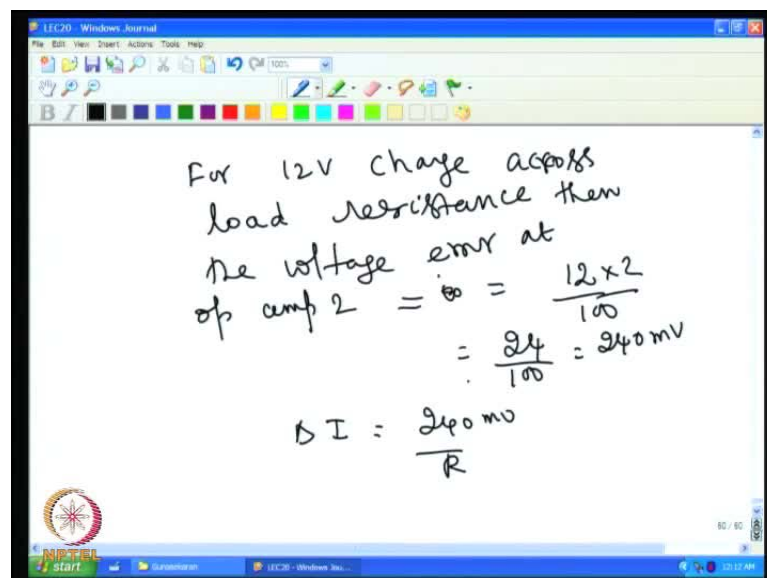 LEC20 - Windows Journal
File Edit View Insert Actions Tools Help
100%
B I
For 12V change across
load resistance then
the voltage error at
op amp 2 = = 12 x 2 / 100
= 24 / 100 = 240 mV
Δ I = 240 mV / R
60 / 60
NPTEL
start Gunasekaran LEC20 - Windows Jou... 12:12 AM